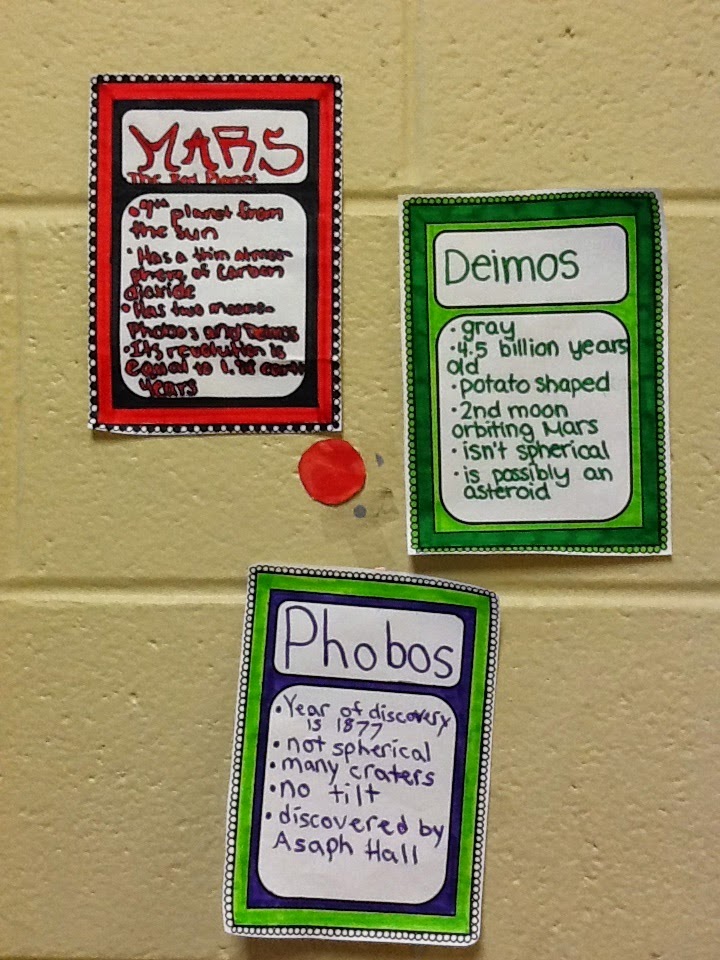 MARS
The Red Planet
• 4th planet from
the sun
• Has a thin atmos-
phere of carbon
dioxide
• Has two moons-
Phobos and Deimos
• It's revolution is
equal to earth
years
Deimos
• gray
• 4.5 billion years
old
• potato shaped
• 2nd moon
orbiting Mars
• isn't spherical
• is possibly an
asteroid
Phobos
• Year of discovery
is 1877
• not spherical
• many craters
• no tilt
• discovered by
Asaph Hall